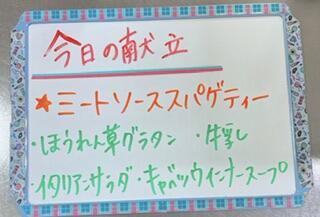 今日の献立
★ミートソーススパゲティー
・ほうれん草グラタン ・牛乳
・イタリアンサラダ ・キャベツウインナースープ